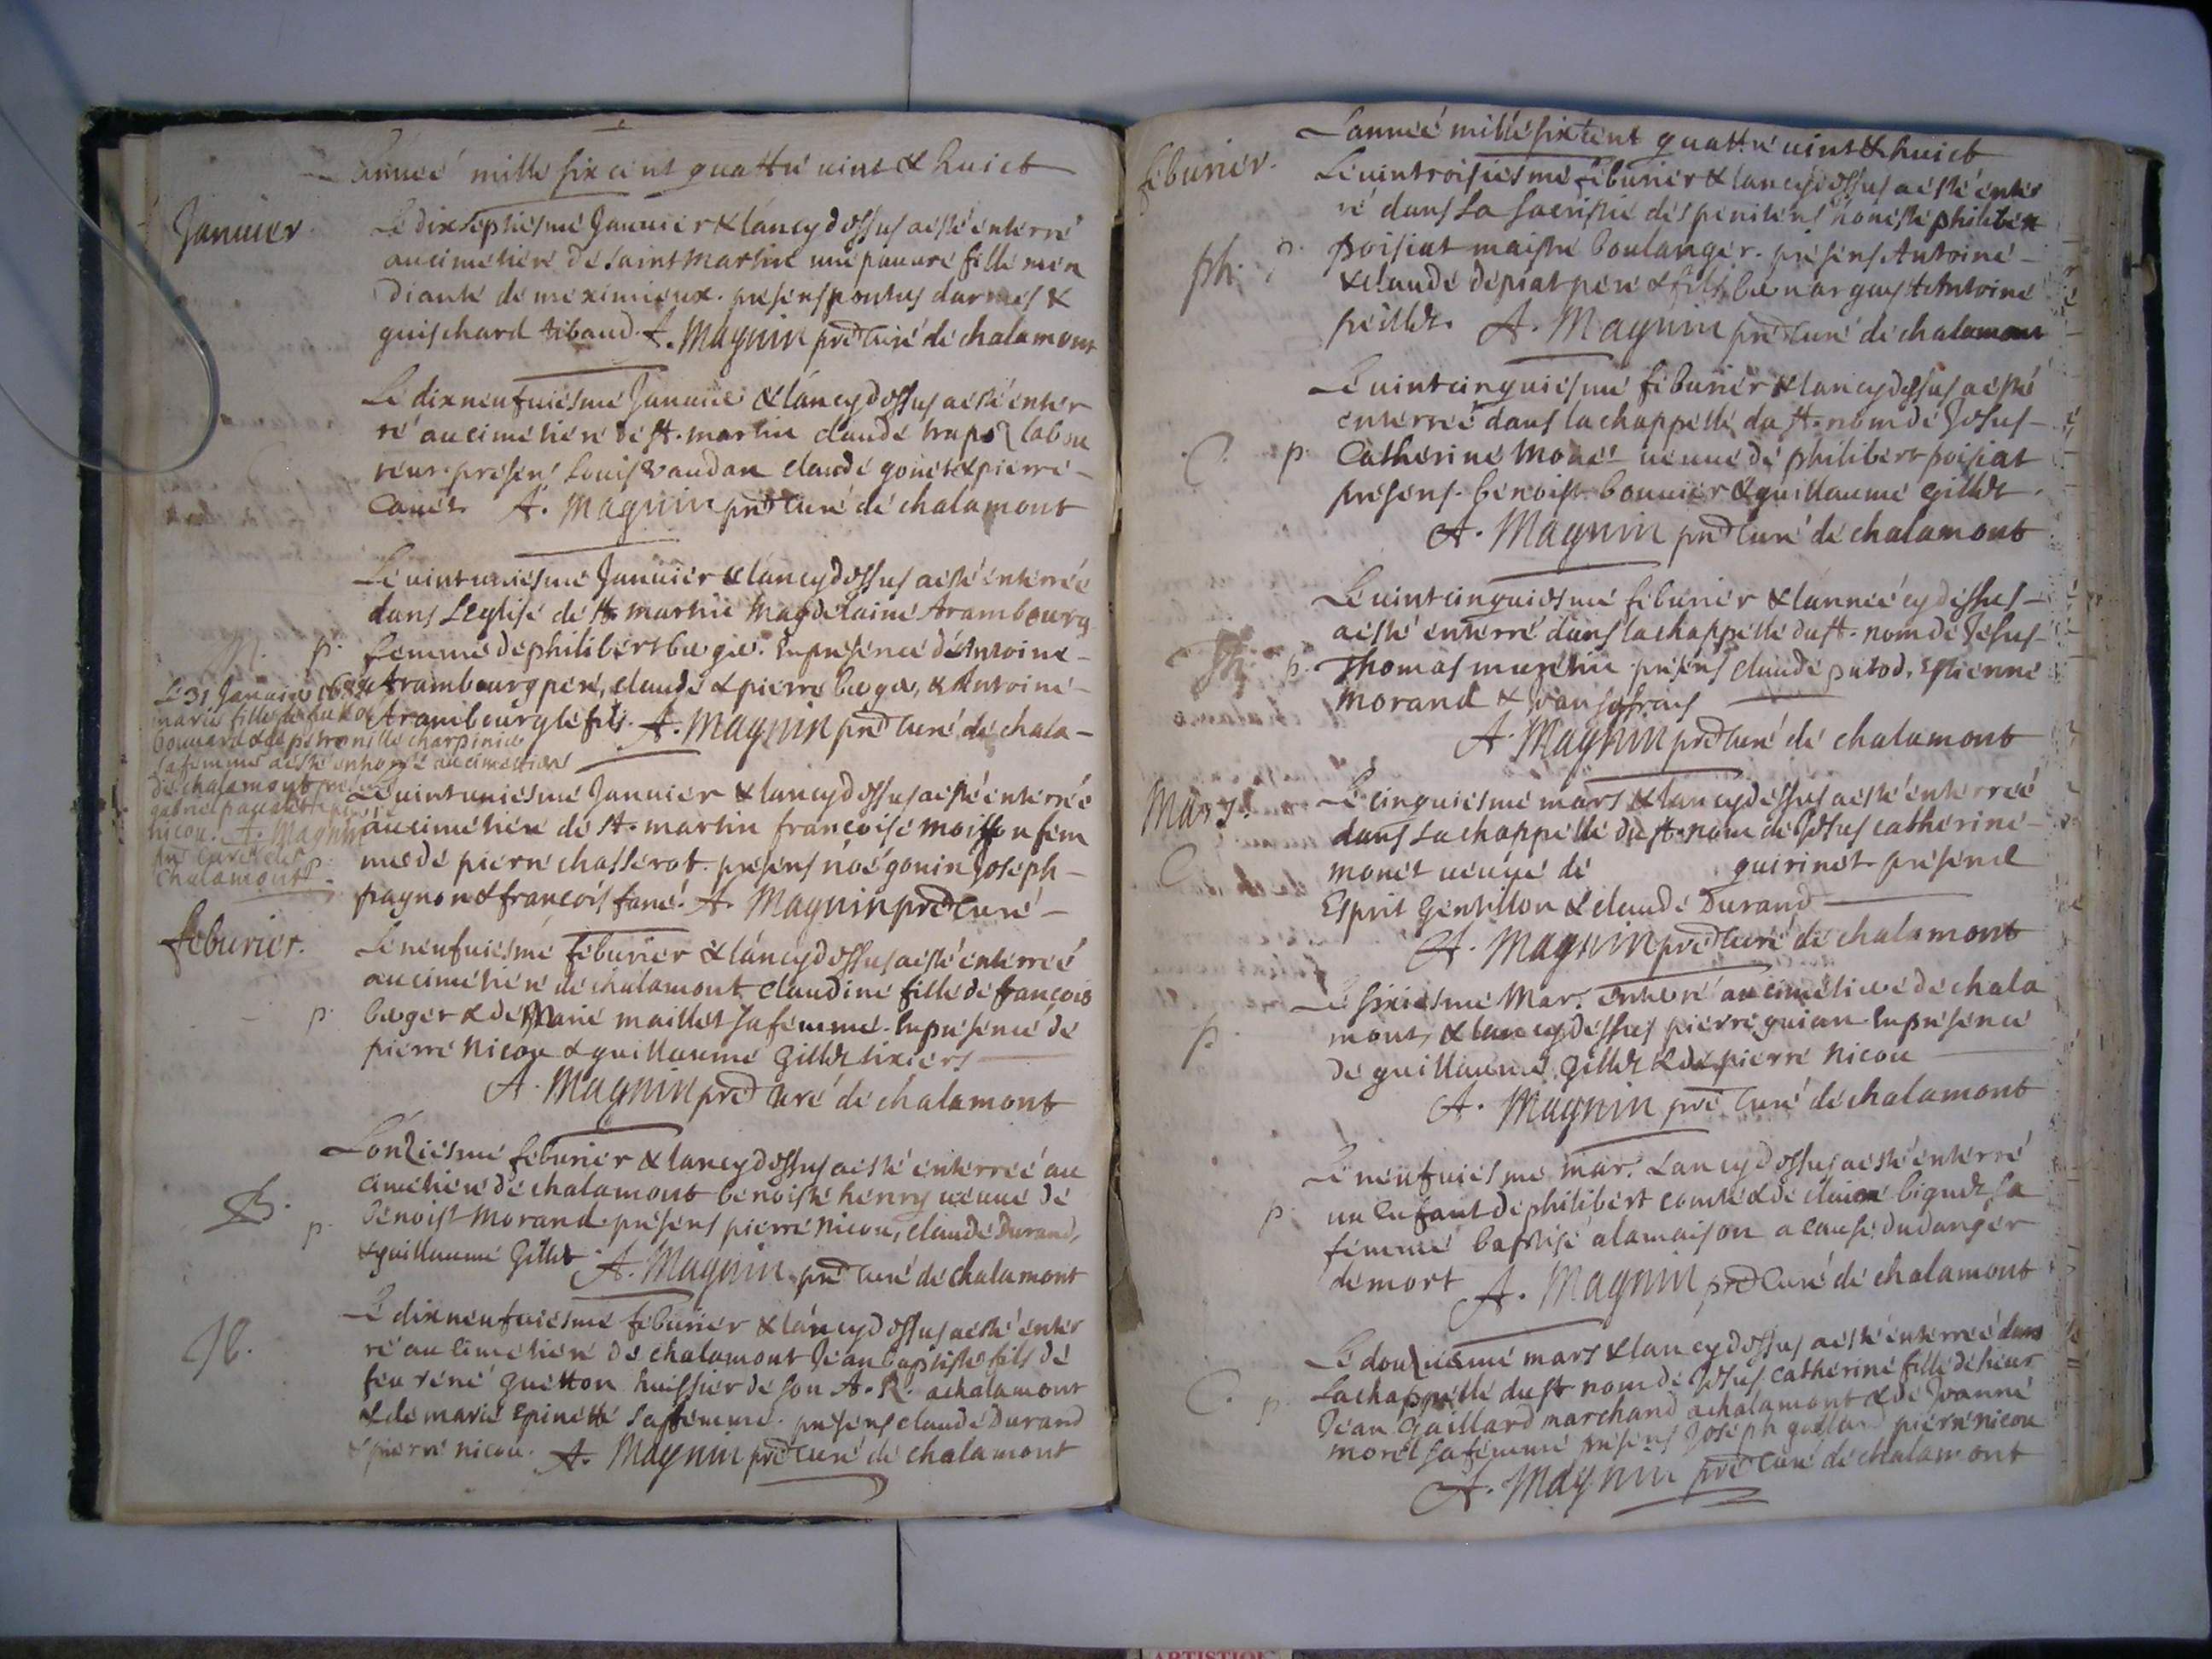 L'année mille six cent quattre vint & huict
Januier.
Le dixseptiesme Januier & lancydessus a esté enterré
au cimetiere de saint Martin une pauure fille men
diante de meximieux. presens pontus darmes &
guischard tibaud. A. Magnin pre curé de chalamont
Le dixneufuiesme Januier & lancydessus a esté enter
ré au cimetiere de st. martin claude trapo labou
reur. presens Louis vaudan claude gonet & pierre
Canet. A. Magnin pre curé de chalamont
Le vintuniesme Januier & lancydessus a esté enterrée
dans L'eglise de st martin Magdelaine Arambourg
M. p. femme de philibert
En presence de Antoine
Arambourg pere, claude & pierre
& Antoine
Arambourg le fils. A. Magnin pre curé de chala-
Le 31 Januier 1688
marie fille de feu
bouuard & de petronille charpinie
sa femme a esté enterré au cimetiere
de chalamont
gabriel
nicou. A. Magnin
pre curé de
chalamont
Le vintuniesme Januier & lancydessus a esté enterrée
au cimetiere de st. martin francoise moisson fem
me de pierre chasserot. presens noé gonin Joseph
pagnon & francois fané. A. Magnin pre curé
feburier.
Le neufuiesme feburier & lancydessus a esté enterreé
au cimetiere de chalamont claudine fille de francois
p. berger & de Marie maillet sa femme. En presence de
pierre Nicou & guillaume Gillet
A. Magnin pre curé de chalamont
L'onziesme feburier & lancydessus a esté enterreé au
cimetiere de chalamont benoiste henry veuue de
B. p. benoist Morand. presens pierre Nicou, claude Durand,
& guillaume Gillet A. Magnin pre curé de chalamont
Le dixneufuiesme feburier & lancydessus a esté enter
ré au cimetiere de chalamont Jean baptiste fils de
feu rené guetton huissier de son A. R. a chalamont
& de marie Epinette sa femme. presens claude Durand
& pierre nicou. A. Magnin pre curé de chalamont
L'anneé mille six cent quattre vint & huict
feburier.
Le vintroisiesme feburier & lancydessus a esté enter
ré dans La sacristie des penitens honeste philibert
ph. p. poisiat maistre boulanger. presens Antoine
& claude depiat pere & fils,
& Antoine
peillet. A. Magnin pre curé de chalamont
Le vintcinquiesme feburier & lancydessus a esté
enterreé dans la chappelle du st. nom de Jesus
C. p. Catherine Monet veuue de philibert poisiat
presens. benoist bouuier & guillaume Gillet.
A. Magnin pre curé de chalamont
Le vintcinquiesme feburier & l'anneé cydessus
a esté enterré dans la chappelle du st. nom de Jesus
Th. p. Thomas
presens claude putod, Estienne
morand &
A. Magnin pre curé de chalamont
Mars.
Le cinquiesme mars & lancydessus a esté enterreé
dans La chappelle du st. nom de Jesus catherine
C. monet veuue de guirinet presens
Esprit Gentillon & claude Durand
A. Magnin pre curé de chalamont
Le sixiesme Mar. enterré au cimetiere de chala
mont, & lancydessus pierre guian En presence
p. de guillaume Gillet & de pierre Nicou
A. Magnin pre curé de chalamont
Le neufuiesme mar. Lancydessus a esté enterré
p. un Enfant de philibert comte & de claire biguet sa
femme baptisé a la maison a cause du danger
de mort A. Magnin pre curé de chalamont
Le douziesme mars & lancydessus a esté enterreé dans
C. p. La chappelle du st nom de Jesus Catherine fille de sieur
Jean Gaillard marchand a chalamont & de Joanne
morel sa femme presens Joseph gaillard pierre nicou
A. Magnin pre curé de chalamont